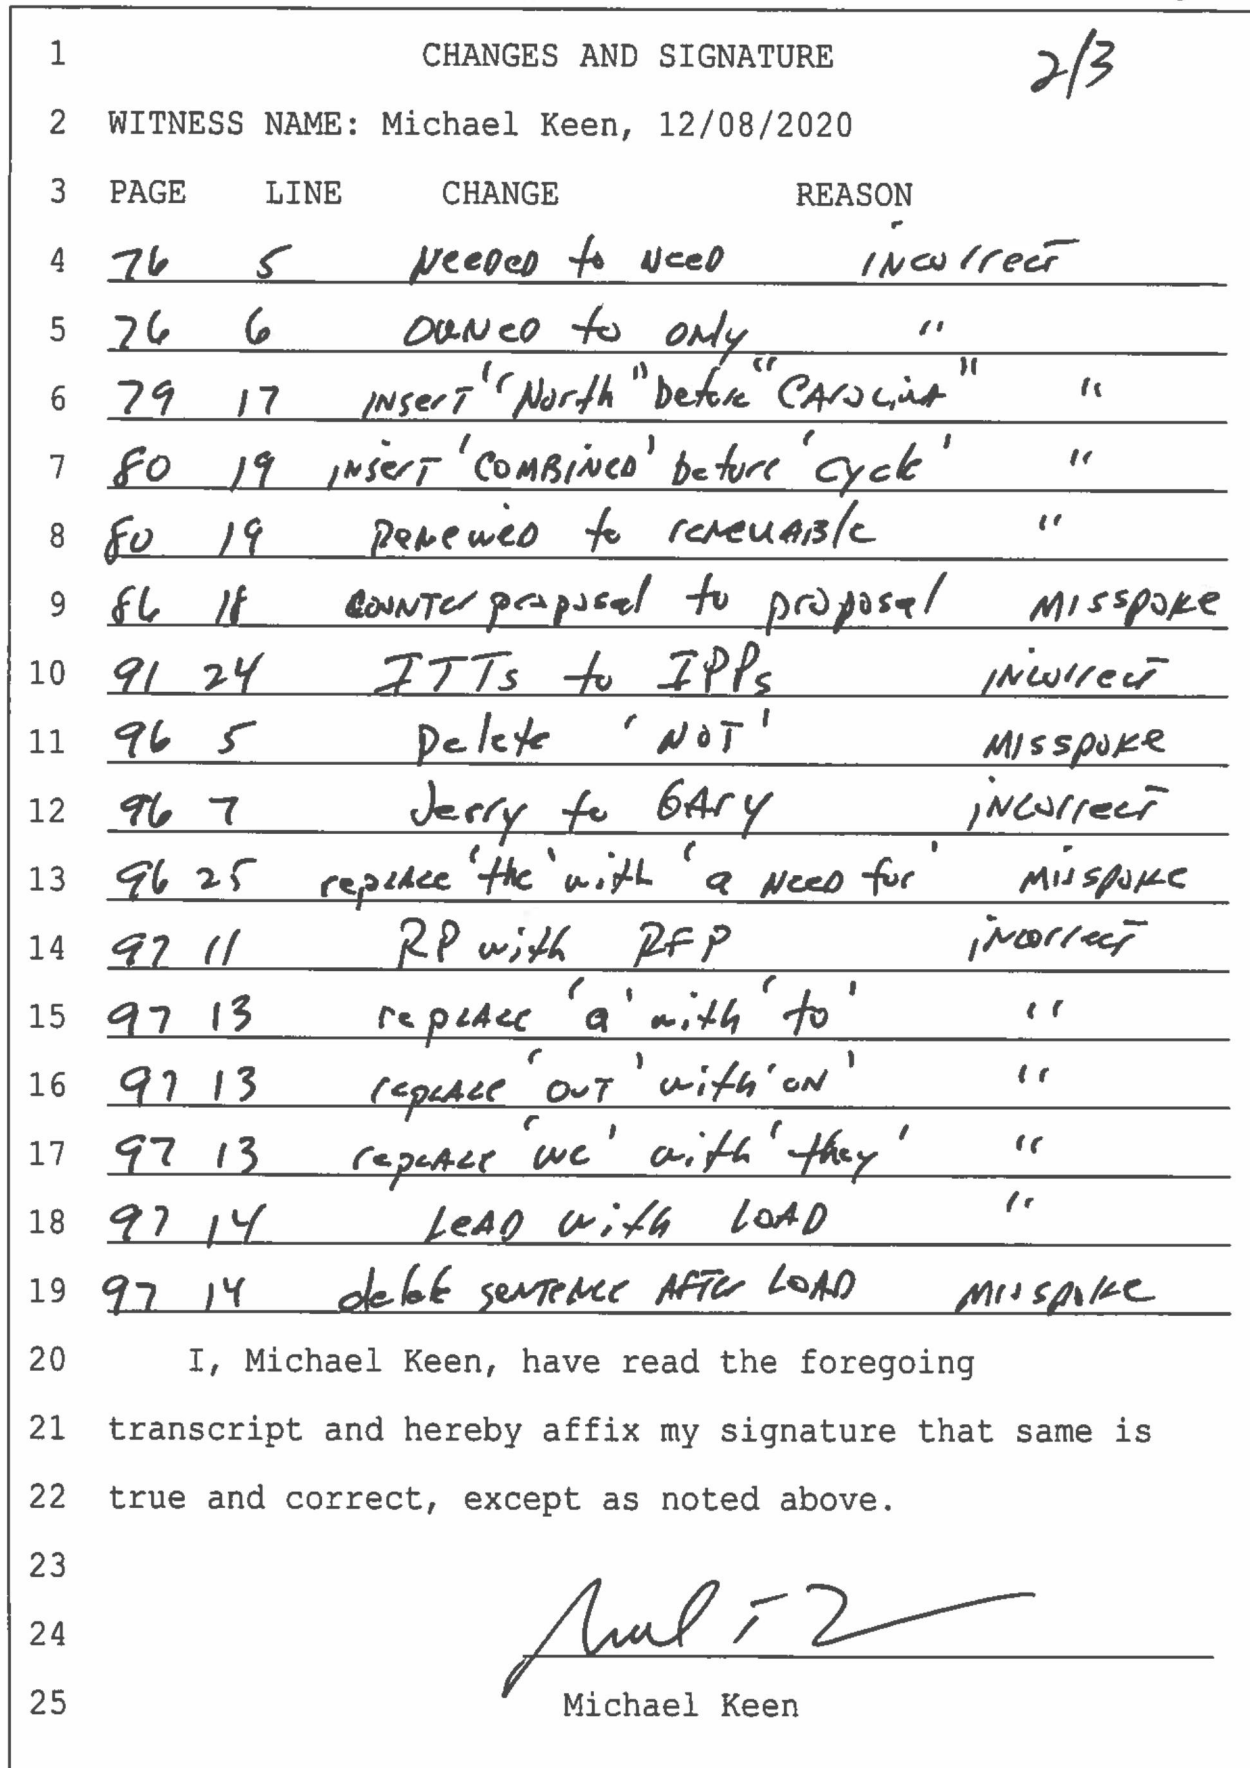 1 CHANGES AND SIGNATURE 2/3
2 WITNESS NAME: Michael Keen, 12/08/2020
3 PAGE LINE CHANGE REASON
4 76 5 Needed to Need incorrect
5 76 6 owned to only "
6 79 17 insert "North" before "Carolina" "
7 80 19 insert 'combined' before 'cycle' "
8 80 19 Renewed to renewable "
9 86 18 counterproposal to proposal misspoke
10 91 24 ITTs to IPPs incorrect
11 96 5 Delete 'NOT' misspoke
12 96 7 Jerry to Gary incorrect
13 96 25 replace 'the' with 'a need for' misspoke
14 97 11 RP with RFP incorrect
15 97 13 replace 'a' with 'to' "
16 97 13 replace 'out' with 'on' "
17 97 13 replace 'we' with 'they' "
18 97 14 Lead with load "
19 97 14 delete sentence after load misspoke
20 I, Michael Keen, have read the foregoing
21 transcript and hereby affix my signature that same is
22 true and correct, except as noted above.
23
24
25 Michael Keen